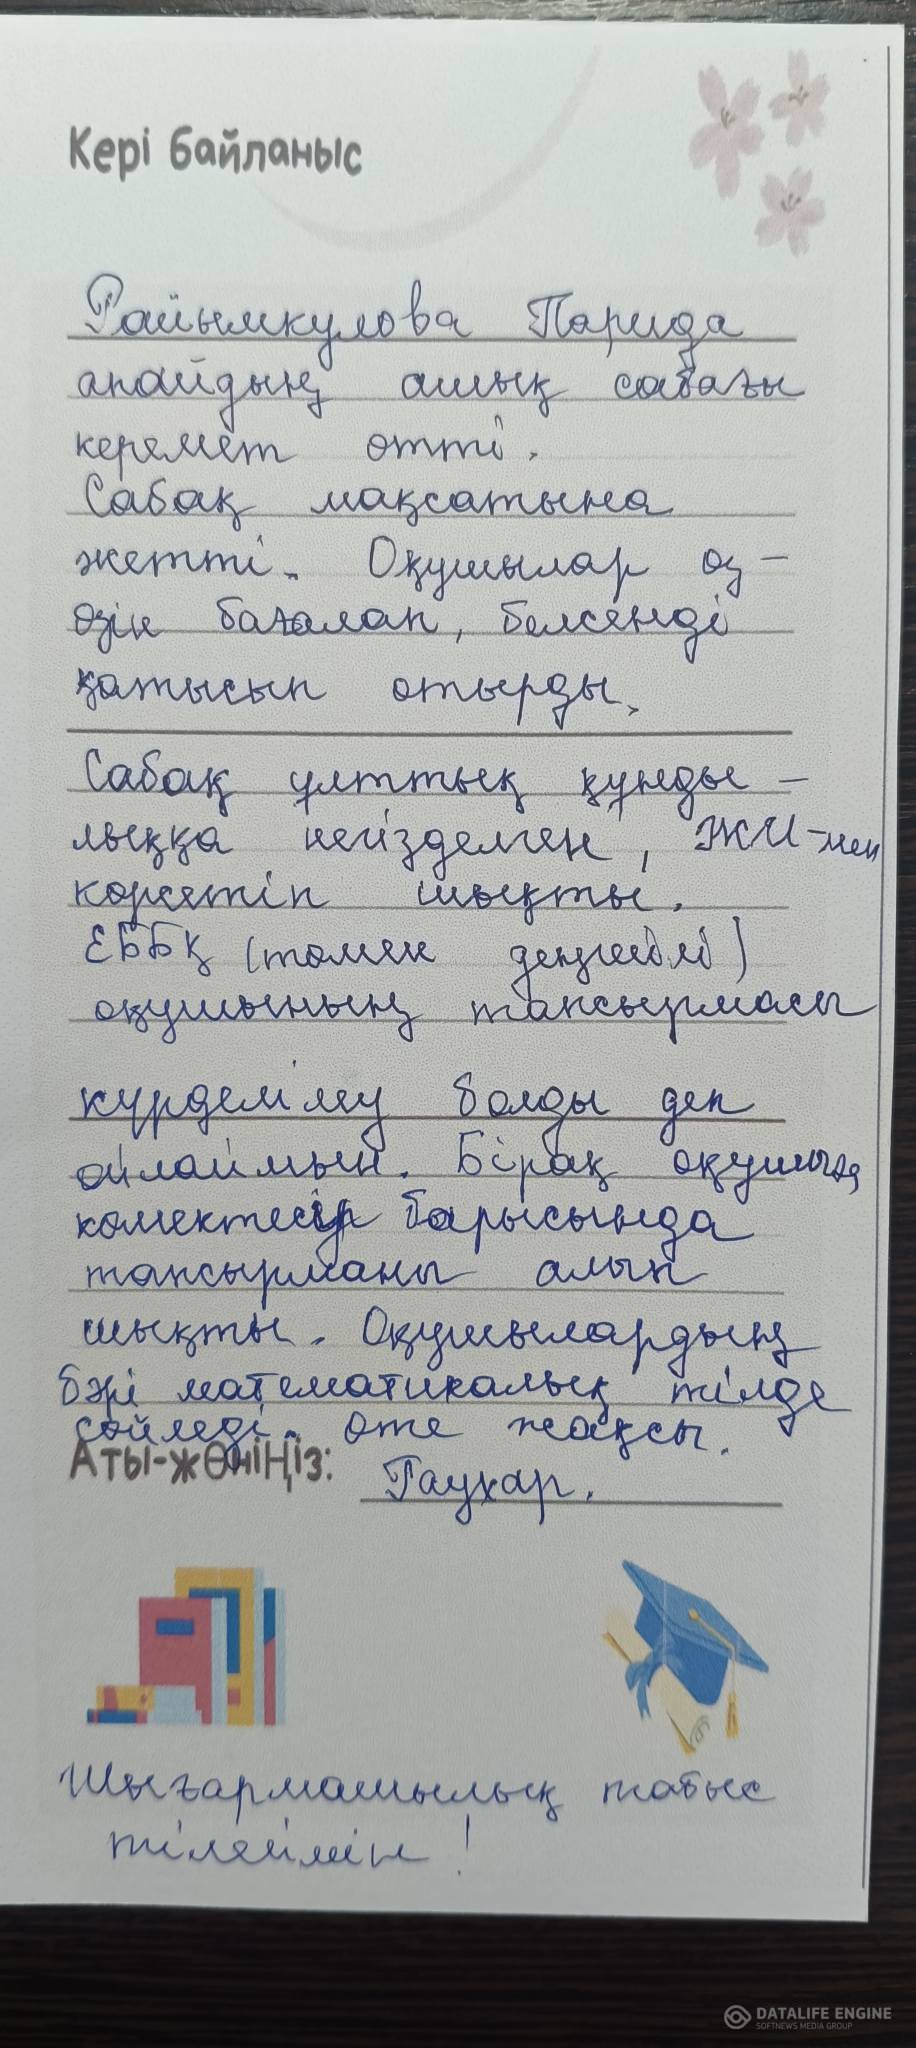 Кері байланыс
Райымкулова Парида
апайдың ашық сабағы
керемет өтті.
Сабақ мақсатына
жетті. Оқушылар өз-
өзін бағалап, белсенді
қатысып отырды.
Сабақ ұлттық құнды-
лыққа негізделген, ЖИ-мен
көрсетіп шықты.
ЕББҚ (төмен деңгейлі)
оқушының тапсырмасы
күрделілеу болды деп
ойлаймын. Бірақ оқушыға
көмектесір барысында
тапсырманы алып
шықты. Оқушылардың
бәрі математикалық тілде
сөйледі. Өте жақсы.
Аты-жөніңіз: Гаухар.
Шығармашылық табыс
тілеймін!
DATALIFE ENGINE
SOFTNEWS MEDIA GROUP